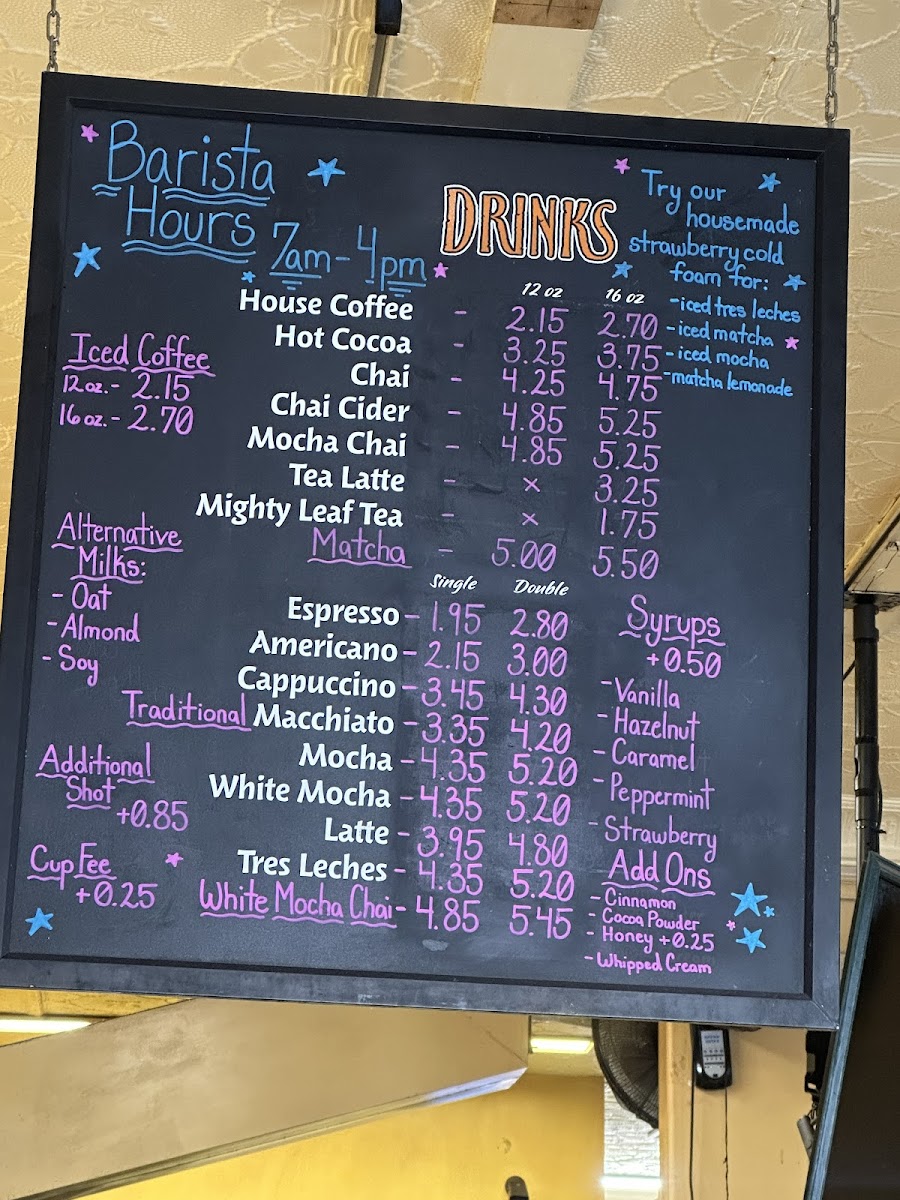 Barista
Hours
7am-4pm
DRINKS
Try our
housemade
strawberry cold
foam for:
- iced tres leches
- iced matcha
- iced mocha
- matcha lemonade
12 oz 16 oz
House Coffee - 2.15 2.70
Hot Cocoa - 3.25 3.75
Chai - 4.25 4.75
Chai Cider - 4.85 5.25
Mocha Chai - 4.85 5.25
Tea Latte - x 3.25
Mighty Leaf Tea - x 1.75
Matcha - 5.00 5.50
Iced Coffee
12 oz. - 2.15
16 oz. - 2.70
Alternative
Milks:
- Oat
- Almond
- Soy
Additional
Shot
+0.85
Cup Fee
+0.25
Single Double
Espresso - 1.95 2.80
Americano - 2.15 3.00
Cappuccino - 3.45 4.30
Traditional Macchiato - 3.35 4.20
Mocha - 4.35 5.20
White Mocha - 4.35 5.20
Latte - 3.95 4.80
Tres Leches - 4.35 5.20
White Mocha Chai - 4.85 5.45
Syrups
+0.50
- Vanilla
- Hazelnut
- Caramel
- Peppermint
- Strawberry
Add Ons
- Cinnamon
- Cocoa Powder
- Honey +0.25
- Whipped Cream